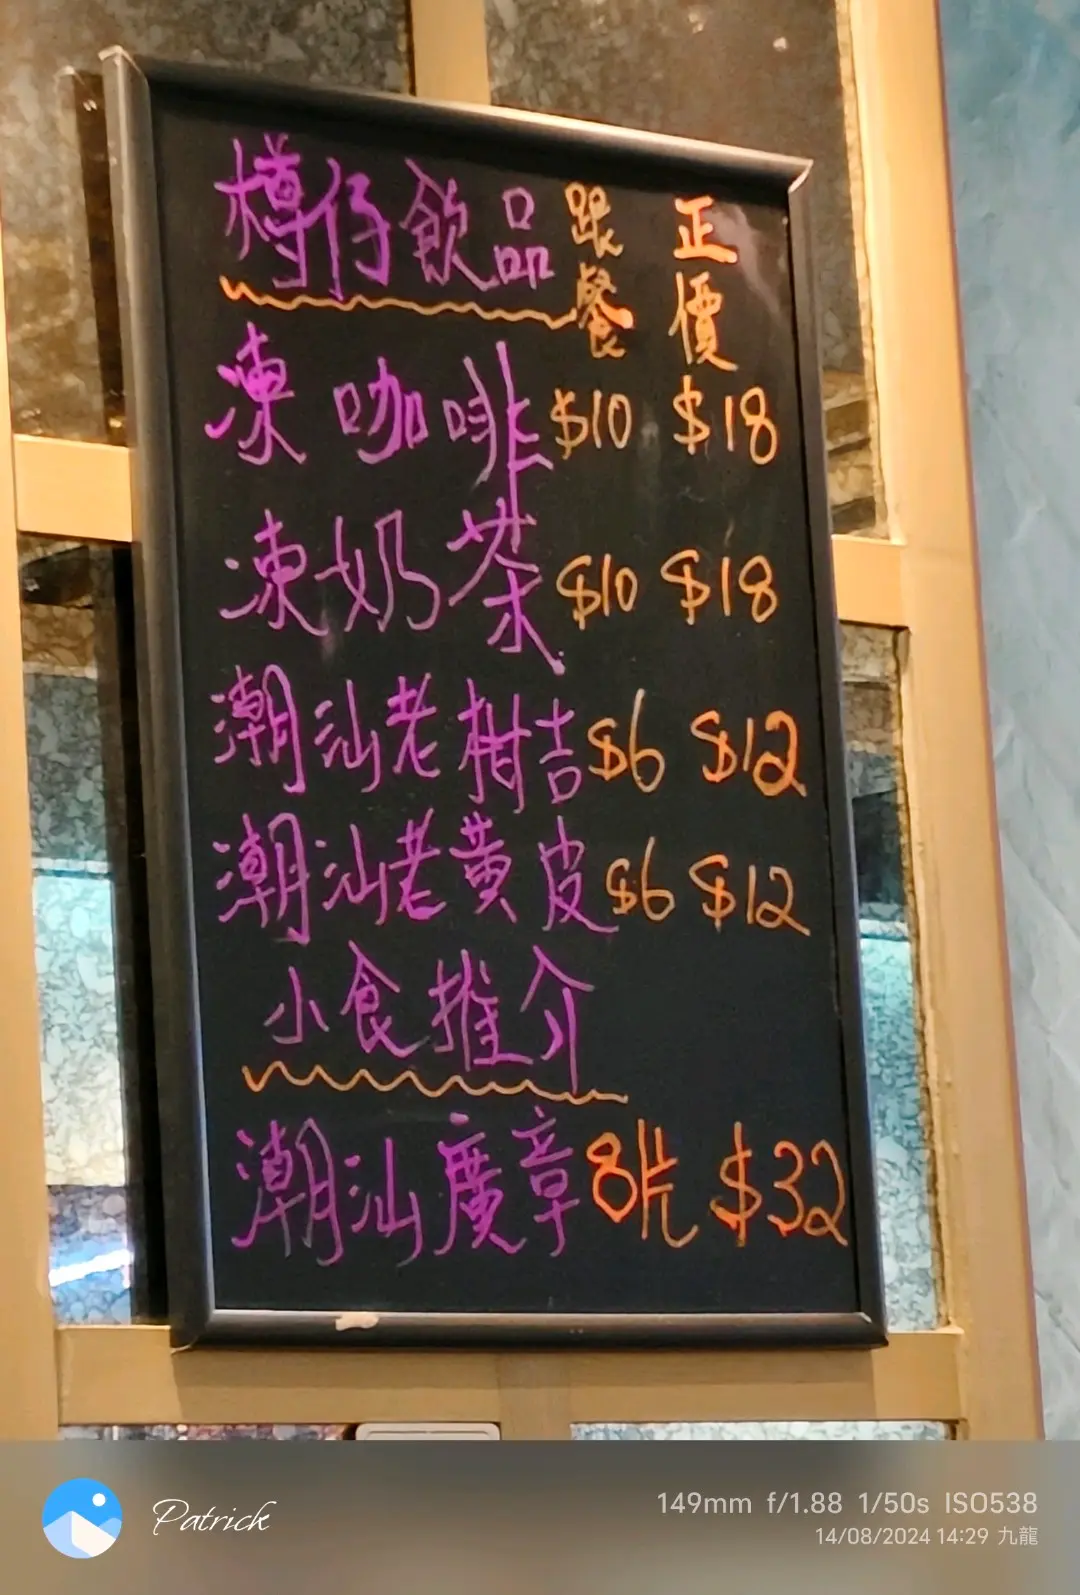 樽仔飲品 跟餐 正價
凍咖啡 $10 $18
凍奶茶 $10 $18
潮汕老柑吉 $6 $12
潮汕老黃皮 $6 $12
小食推介
潮汕廣章 8片 $32
Patrick
149mm f/1.88 1/50s ISO538
14/08/2024 14:29 九龍